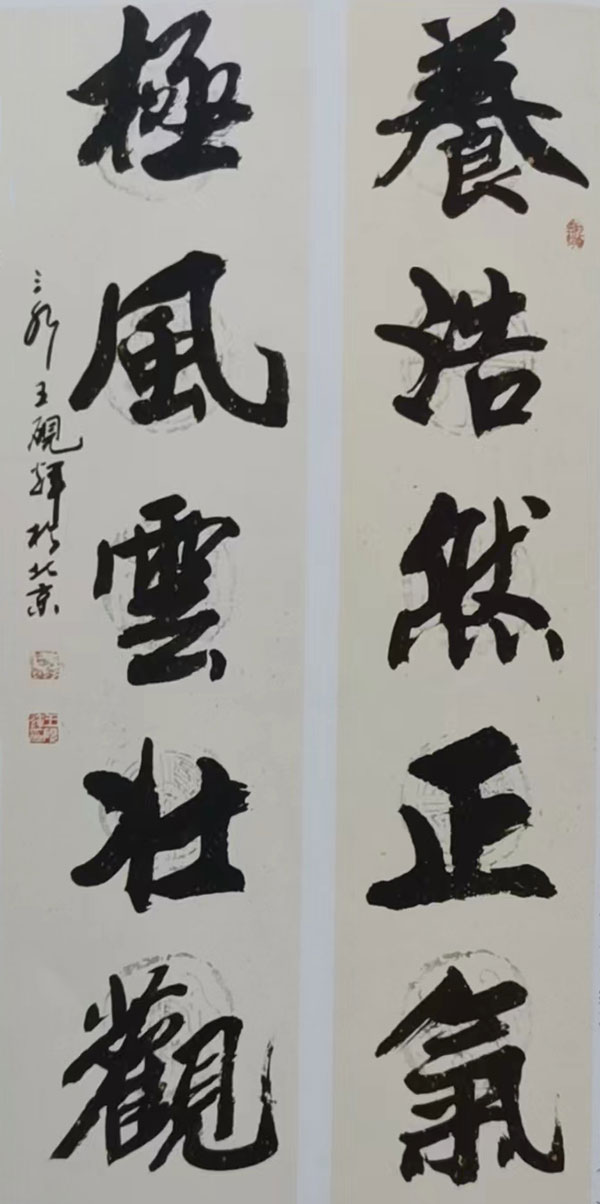 養浩然正氣
極風雲壯觀
王硯輝於北京